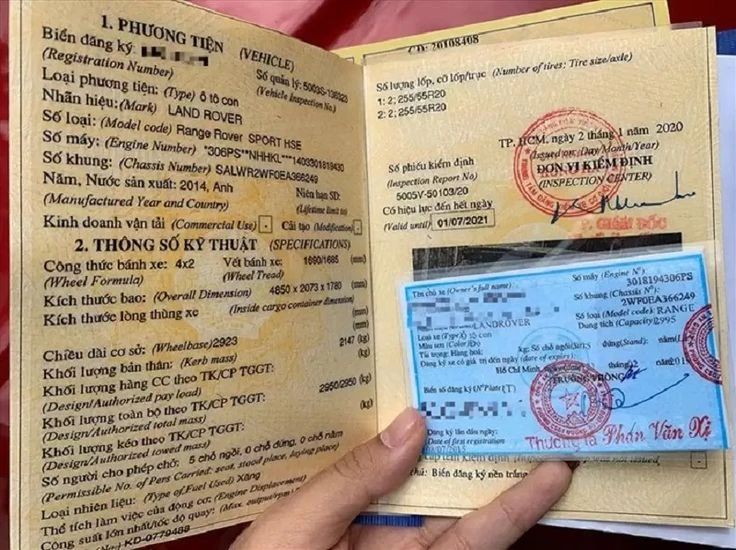 1. PHƯƠNG TIỆN (VEHICLE)
Biển đăng ký:
(Registration Number)
Số quản lý: 5003S-136323
(Vehicle Inspection No.)
Loại phương tiện: (Type) ô tô con
Nhãn hiệu: (Mark) LAND ROVER
Số loại: (Model code) Range Rover SPORT HSE
Số máy: (Engine Number) *306PS**NHHKL***1403301819430
Số khung: (Chassis Number) SALWR2WF0EA366249
Năm, Nước sản xuất: 2014, Anh
Niên hạn SD:
(Manufactured Year and Country)
(Lifetime limit to)
Kinh doanh vận tải (Commercial Use) - Cải tạo (Modification) -
2. THÔNG SỐ KỸ THUẬT (SPECIFICATIONS)
Công thức bánh xe: 4x2 Vết bánh xe: 1690/1685 (mm)
(Wheel Formula) (Wheel Tread)
Kích thước bao: (Overall Dimension) 4850 x 2073 x 1780 (mm)
Kích thước lòng thùng xe (Inside cargo container dimension)
(mm)
Chiều dài cơ sở: (Wheelbase) 2923 (mm)
Khối lượng bản thân: (Kerb mass) 2147 (kg)
Khối lượng hàng CC theo TK/CP TGGT: (kg)
(Design/Authorized pay load)
Khối lượng toàn bộ theo TK/CP TGGT: 2950/2950 (kg)
(Design/Authorized total mass)
Khối lượng kéo theo TK/CP TGGT: (kg)
(Design/Authorized towed mass)
Số người cho phép chở: 5 chỗ ngồi, 0 chỗ đứng, 0 chỗ nằm
(Permissible No. of Pers Carried: seat, stood place, laying place)
Loại nhiên liệu: (Type of Fuel Used) Xăng
Thể tích làm việc của động cơ: (Engine Displacement)
Công suất lớn nhất/tốc độ quay: (Max. output/rpm)
KD-0779488
CD: 20108408
Số lượng lốp, cỡ lốp/trục (Number of tires; Tire size/axle)
1: 2; 255/55R20
2: 2; 255/55R20
TP. HCM, ngày 2 tháng 1 năm 2020
(Issued on: Day/Month/Year)
Số phiếu kiểm định
(Inspection Report No)
5005V-50103/20
ĐƠN VỊ KIỂM ĐỊNH
(INSPECTION CENTER)
Có hiệu lực đến hết ngày
(Valid until) 01/07/2021
P. GIÁM ĐỐC
Tên chủ xe (Owner's full name):
Số máy (Engine N°):
3018194306PS
Số khung (Chassis N°):
2WF0EA366249
LANDROVER
Số loại (Model code): RANGE
Loại xe (Type): ô con
Dung tích (Capacity): 2995
Màu sơn (Color):
Tải trọng: Hàng hoá: kg; Số chỗ ngồi: 5 đứng (Stand):
Đăng ký xe có giá trị đến ngày (date of expiry)
Hồ Chí Minh,
Biển số đăng ký (N° Plate)
TRƯỞNG PHÒNG
Đăng ký lần đầu ngày:
Date of first registration
Thượng tá Phan Văn Xê
Biển đăng ký nền trắng